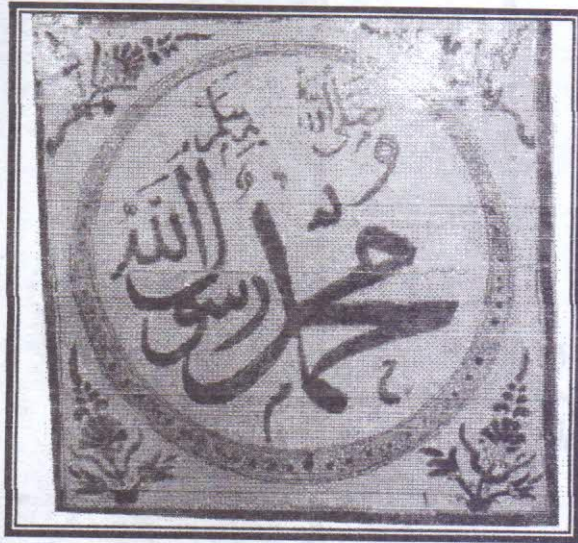 محمد رسول الله
صلى الله
وسلم